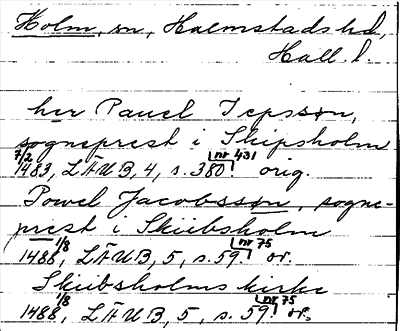 Holm, sn, Halmstads hd,
Hall. l.
her Pauel Jepsøn,
sogneprest i Skipsholm
7/2 1483, LÄUB, 4, s. 380 nr 431 orig.
Powel Jacobssøn, sogne-
prest i Skiibsholm
1/8 1488, LÄUB, 5, s. 59. nr 75 or.
Skiibsholms kirke
1/8 1488, LÄUB, 5, s. 59. nr 75 or.